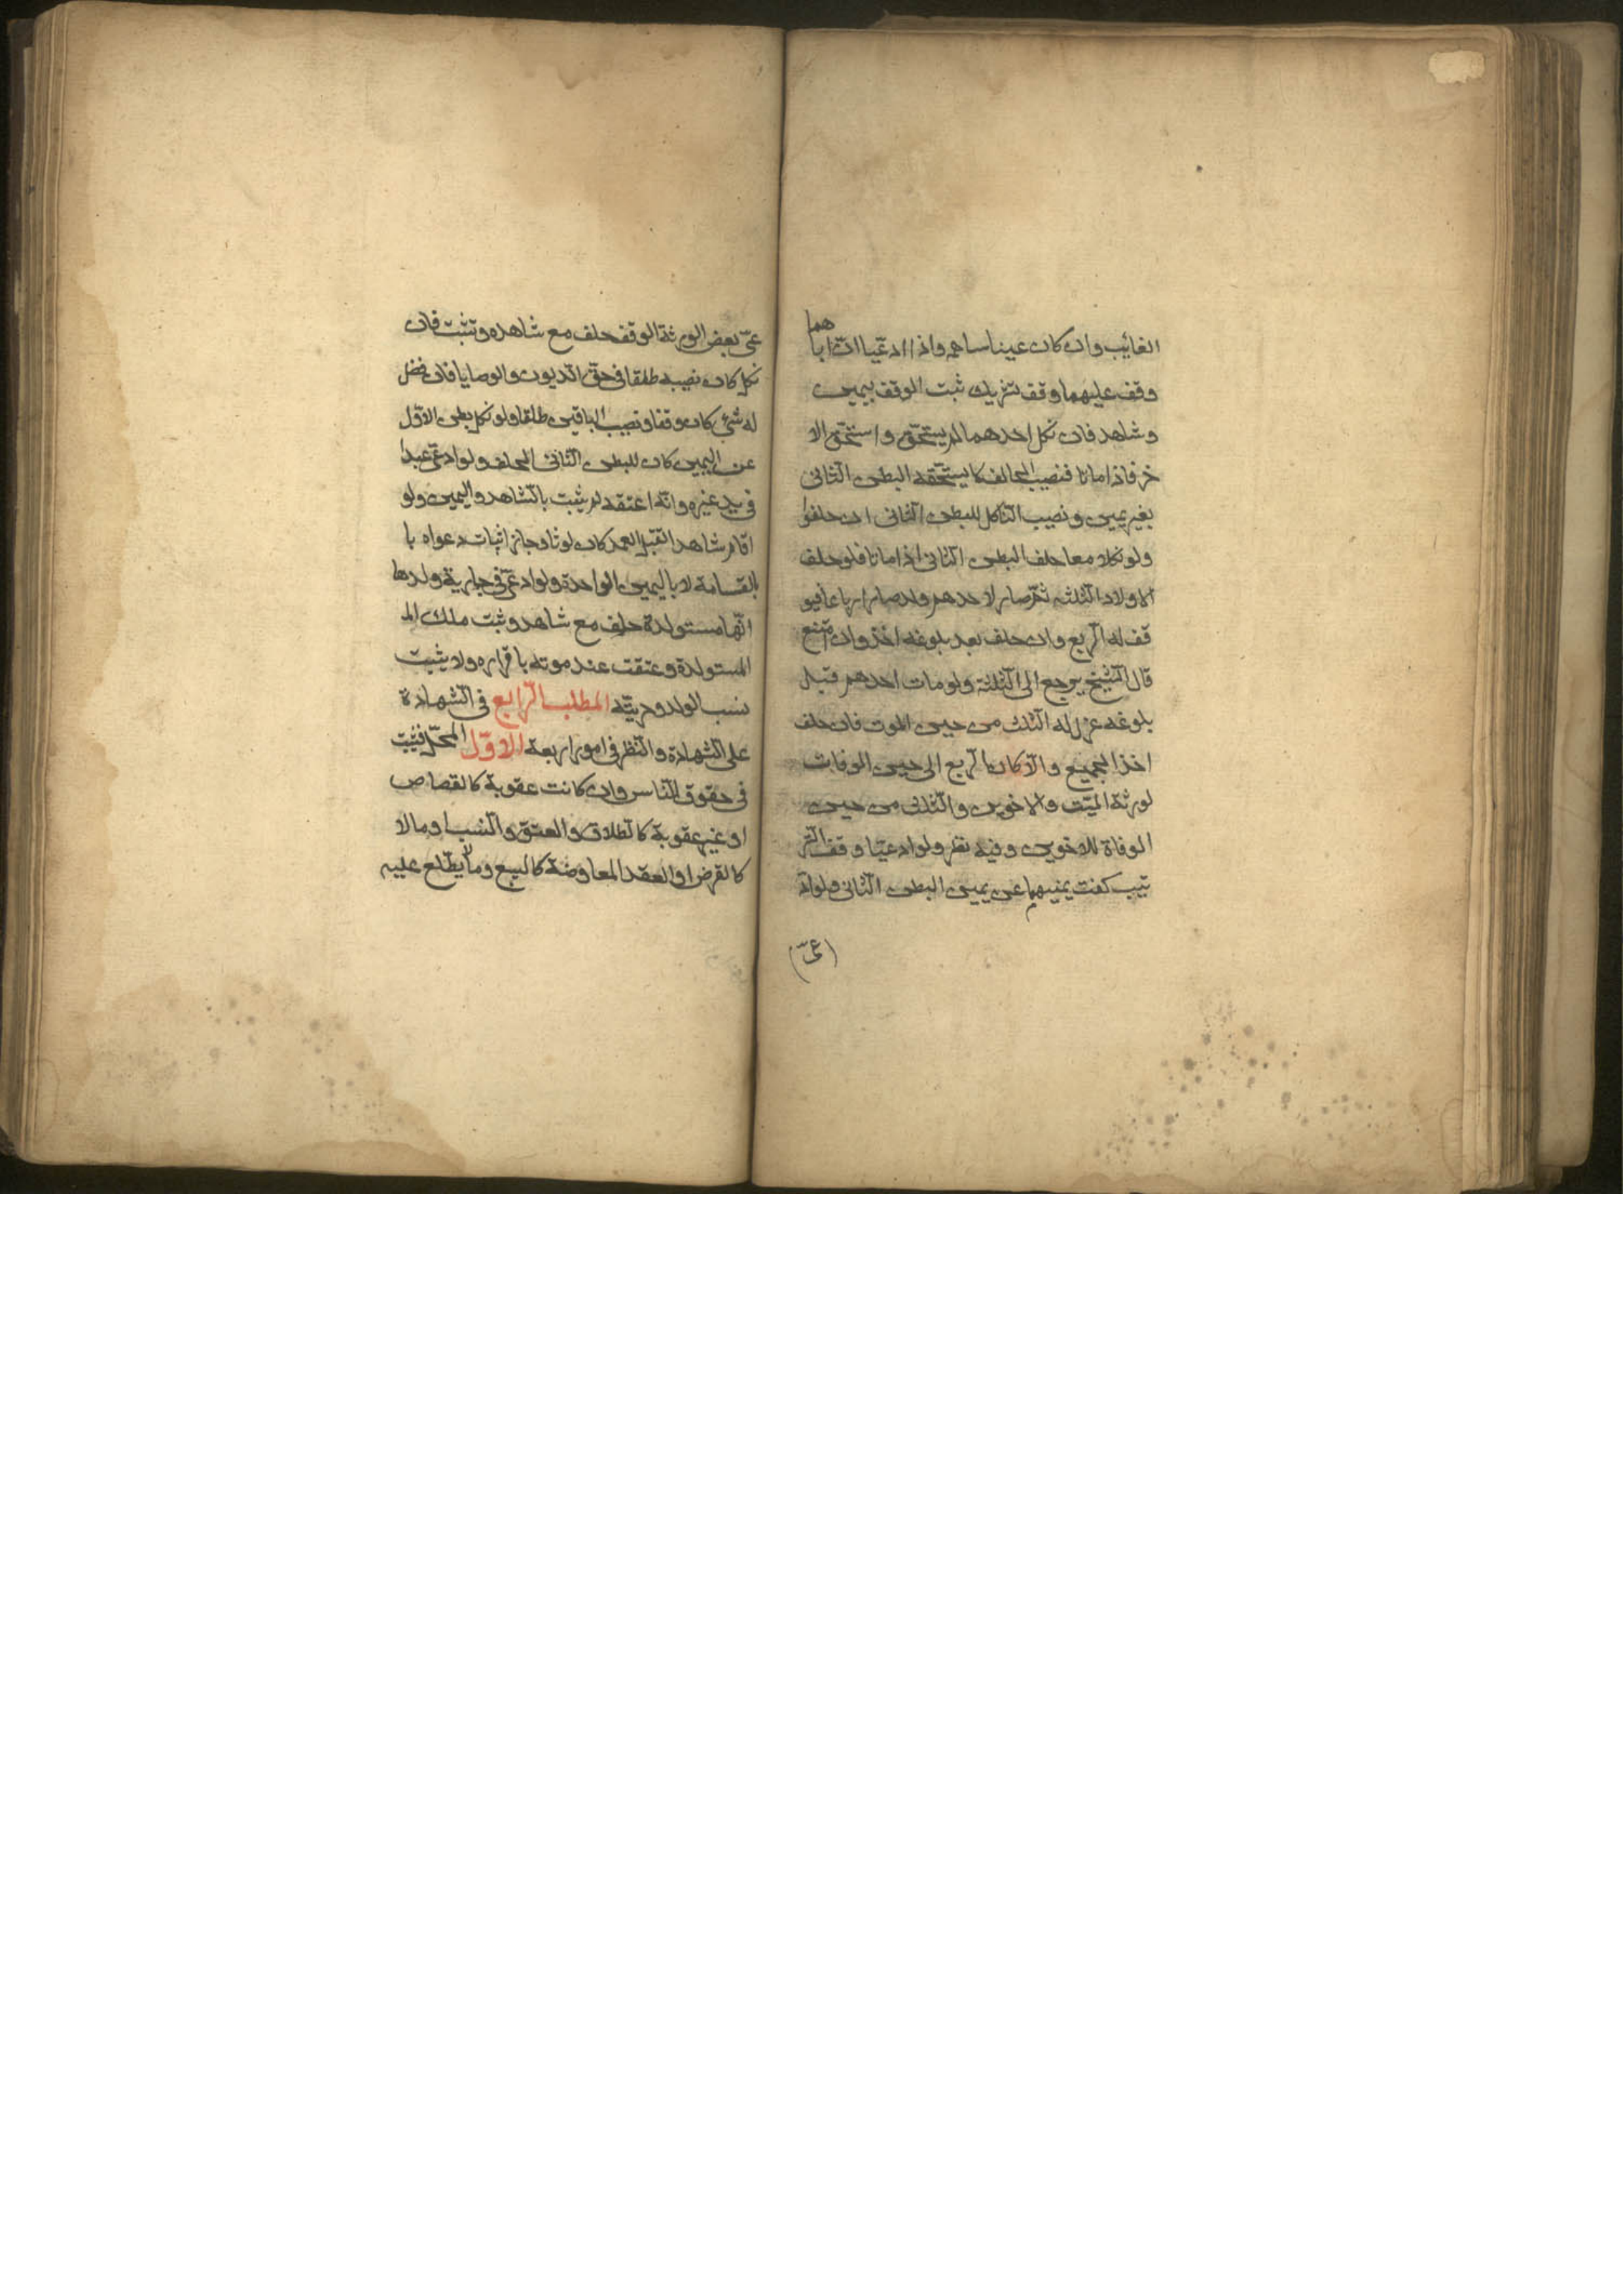 الغائب وان كان عينا ساهمه واذا ادعيا ان اباهما
وقف عليهما وقف تشريك ثبت الوقف بيمين
وشاهد فان نكل احدهما لم يستحق و استحق الا
خر فاذا ماتا فنصيب الحالف كا يستحقه البطن الثانى
بغير يمين و نصيب الناكل للبطن الثانى ان حلفوا
ولو نكلا معا حلف البطن الثانى اذا ماتا فلو حلف
الاولاد الثلثه ثم صار لاحدهم ولد صار ارباعا فيو
قف له الربع وان حلف بعد بلوغه اخذ وان امتنع
قال الشيخ يرجع الى الثلثة ولو مات احدهم قبل
بلوغه عزل له الثلث من حين الموت فان حلف
اخذ الجميع والا كان الربع الى حين الوفات
لورثة الميت والاخوين والثلث من حين
الوفاة للاخوين وفيه نظر ولو ادعيا وقف التر
تيب كفت يمينهما عن يمين البطن الثانى ولو اد
(عى)
عى بعض الورثة الوقف حلف مع شاهده وتثبت فان
نكل كان نصيبه طلقا فى حق الديون والوصايا فان فضل
له شئ كان وقفا و نصيب الباقين طلقا ولو نكل بطن الاول
عن اليمين كان للبطن الثانى الحلف ولو ادعى عبدا
فى يد غيره وانه اعتقه لم يثبت بالشاهد واليمين ولو
اقام شاهدا بقتل العمد كان لوثا وجاز اثبات دعواه با
بالقسامة لا باليمين الواحدة ولو ادعى فى جارية وولدها
انها مستولدة حلف مع شاهد وثبت ملك الم
المستولدة وعتقت عند موته باقراره ولا يثبت
نسب الولد وحريته المطلب الرابع فى الشهادة
على الشهادة والنظر فى امور اربعة الاول المحل فيثبت
فى حقوق الناس وان كانت عقوبة كالقصاص
او غير عقوبة كالطلاق والعتق والنسب او مالا
كالقرض او العقد المعاوضة كالبيع وما لا يطلع عليه